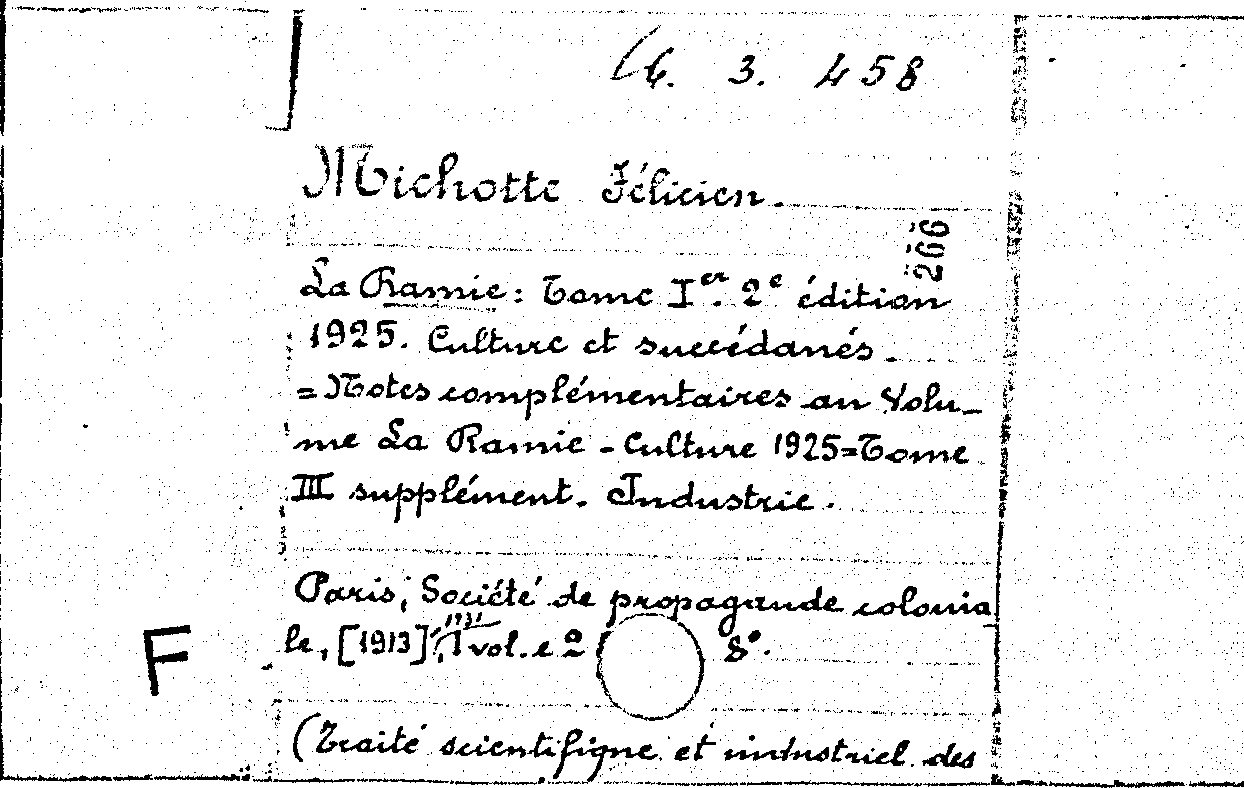 6. 3. 458
Michotte Félicien.
266
La Ramie: Tome Ier. 2e édition
1925. Culture et succédanés.
= Notes complémentaires au Volu-
me La Ramie - Culture 1925 = Tome
III supplément. Industrie.
Paris, Société de propagande colonia
1931
le, [1913], 1 vol. e 2 8°.
F
(Traité scientifique et industriel des